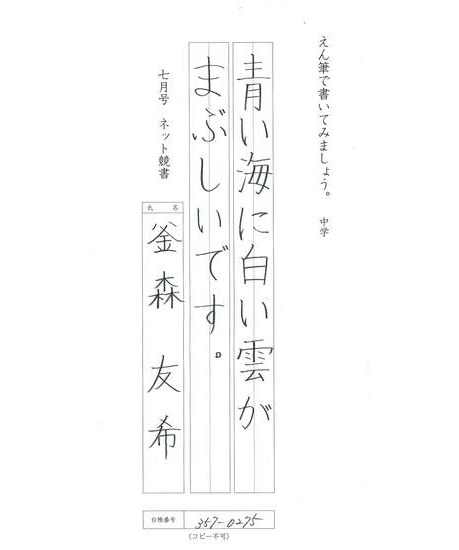 えん筆で書いてみましょう。 中学
青い海に白い雲が
まぶしいです。
七月号 ネット競書
氏名
釜森 友希
台帳番号 357-0275
(コピー不可)